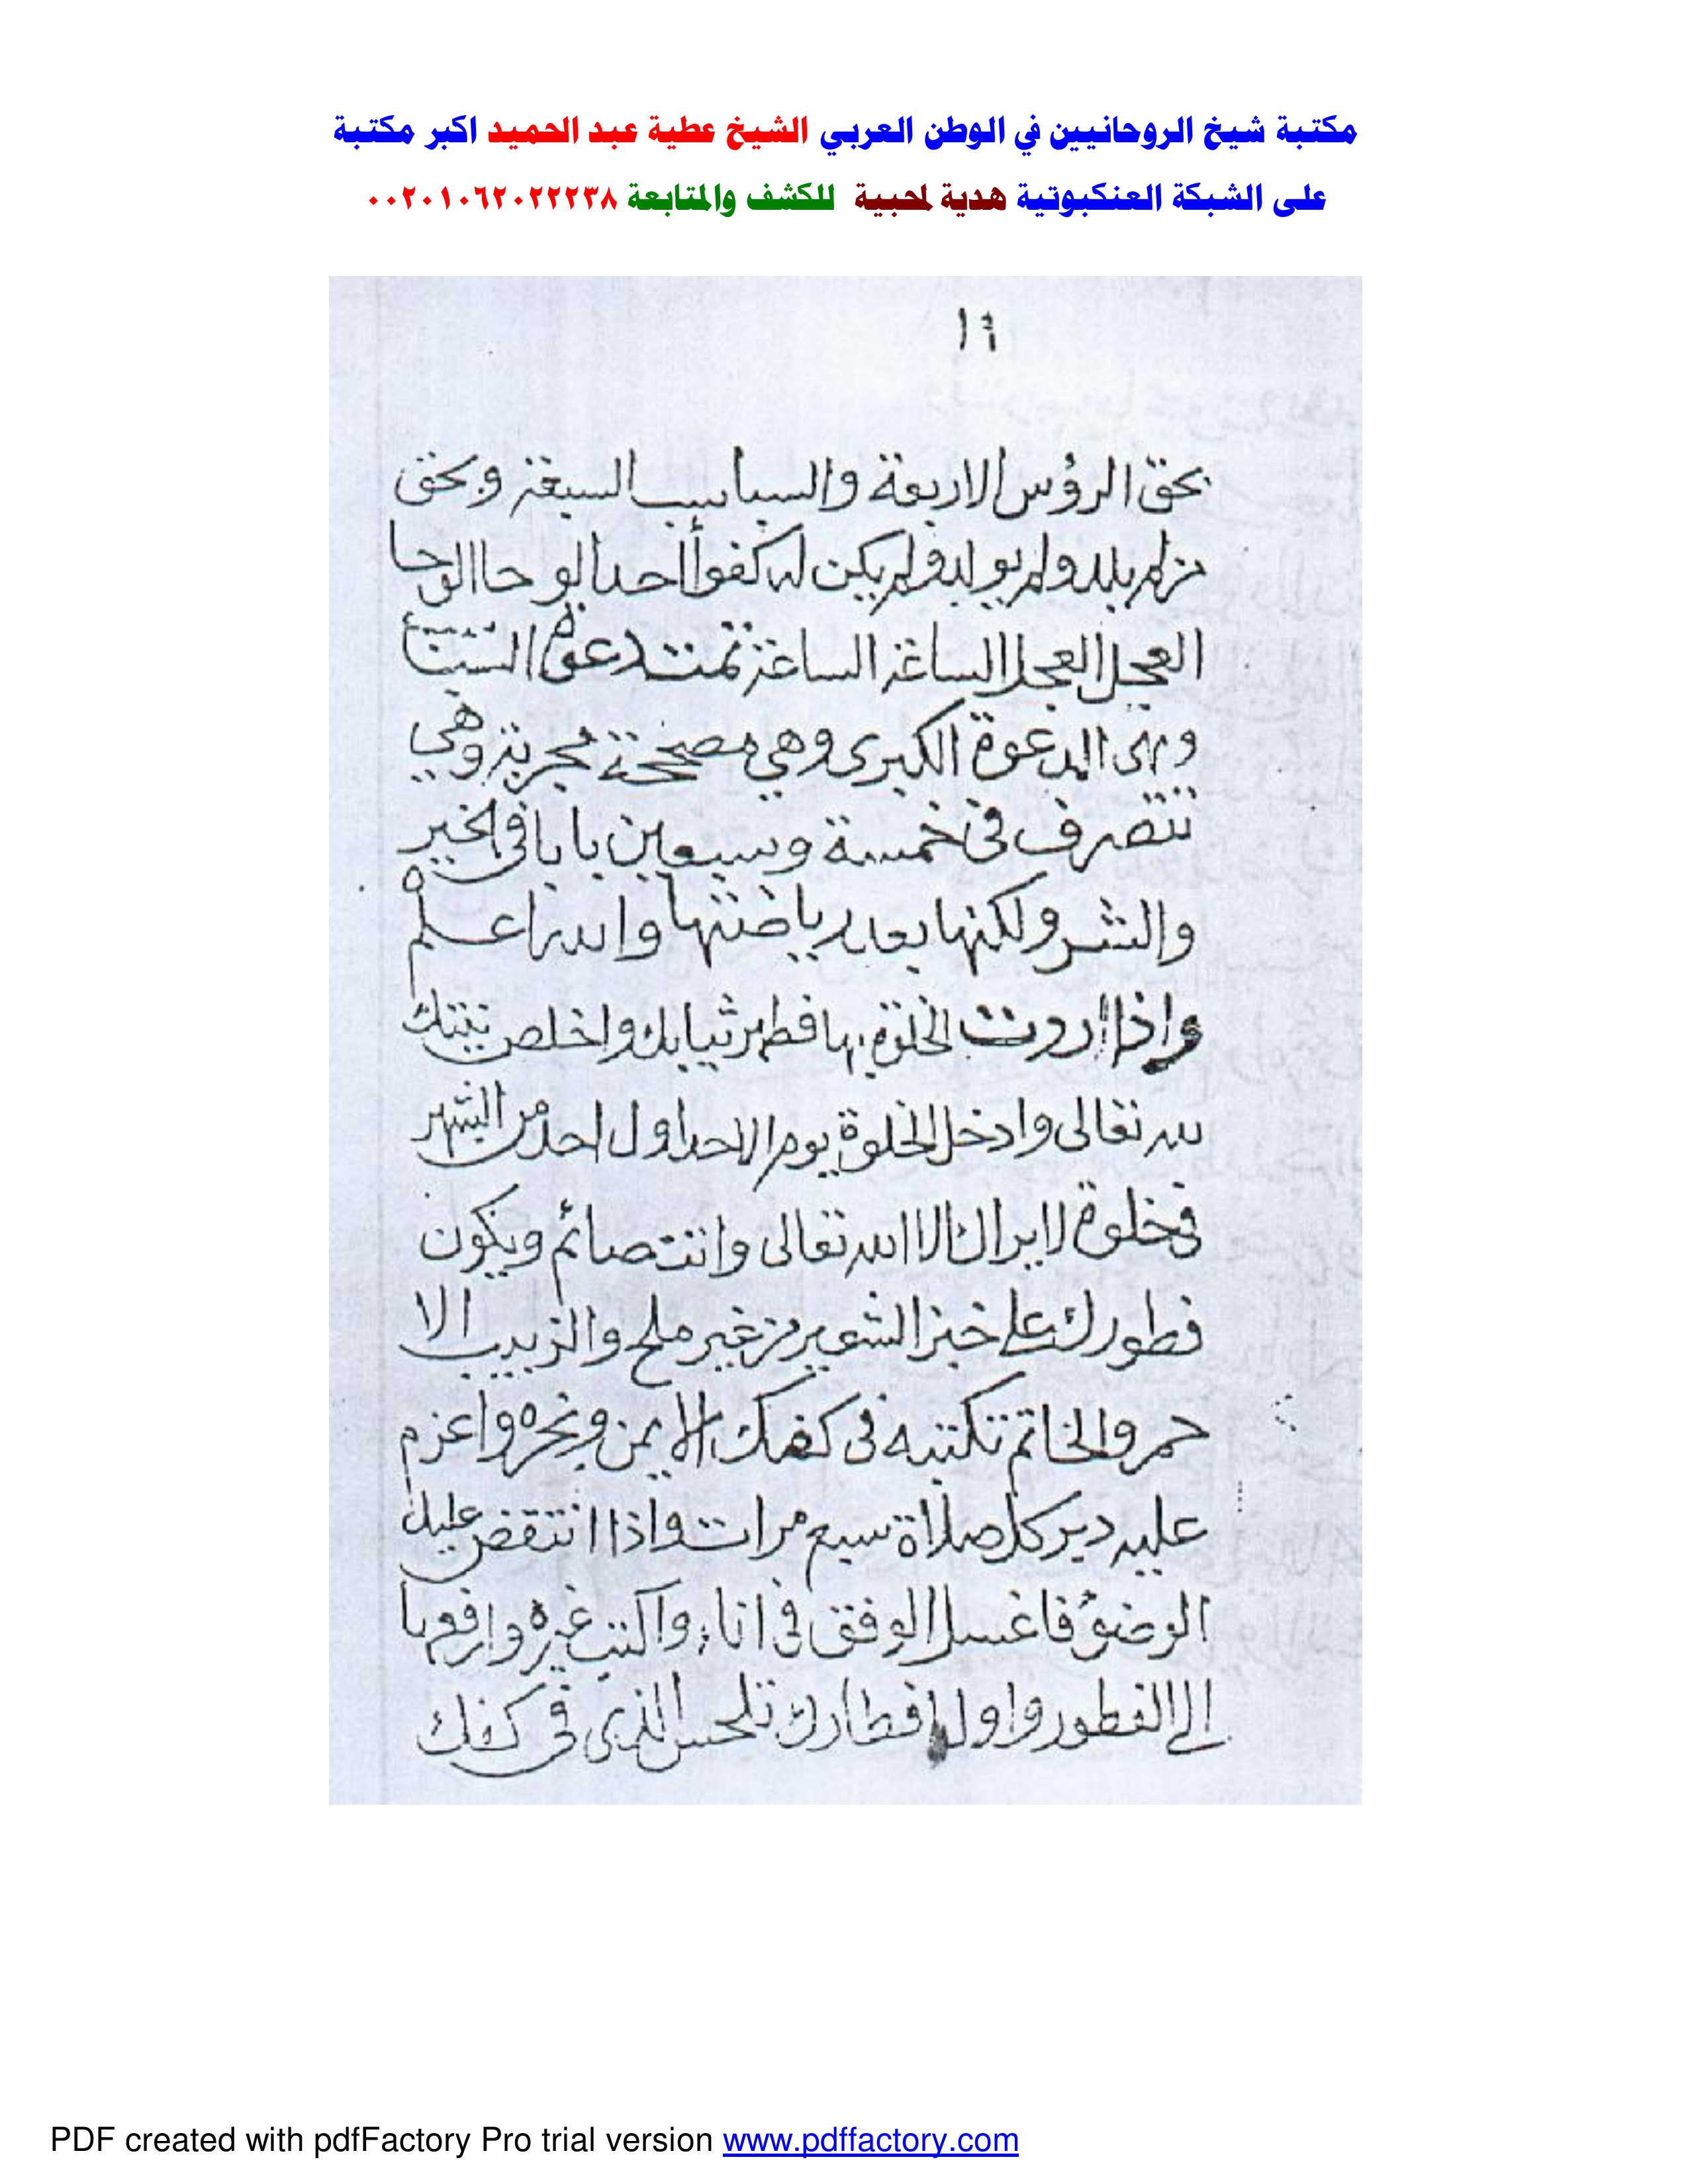 مكتبة شيخ الروحانيين في الوطن العربي الشيخ عطية عبد الحميد اكبر مكتبة
على الشبكة العنكبوتية هدية لمحبية للكشف والمتابعة ٠٠٢٠١٠٦٢٠٢٢٢٣٨
بحق الرؤس الاربعة والسباسب السبعة وبحق
من لم يلد ولم يولد ولم يكن له كفواً احد الوحا الوحا
العجل العجل الساعة الساعة تمت دعوة
وهى الدعوة الكبرى وهي مصححة مجربة وهي
تتصرف في خمسة وسبعين بابا في الخير
والشر ولكنها بعد رياضتها والله اعلم
واذا اردت الخلوة بها فطهر ثيابك واخلص نيتك
لله تعالى وادخل الخلوة يوم الاحد اول احد من الشهر
في خلوة لا يراك الا الله تعالى وانت صائم ويكون
فطورك على خبز الشعير من غير ملح والزبيب الا
حمر والخاتم تكتبه في كفك الايمن وبخره واعزم
عليه دبر كل صلاة سبع مرات واذا انتقض عليك
الوضوء فاغسل الوفق في اناء واكتب غيره وارفع
إلى الفطور واول افطارك تلحس الذى في كفك
PDF created with pdfFactory Pro trial version www.pdffactory.com